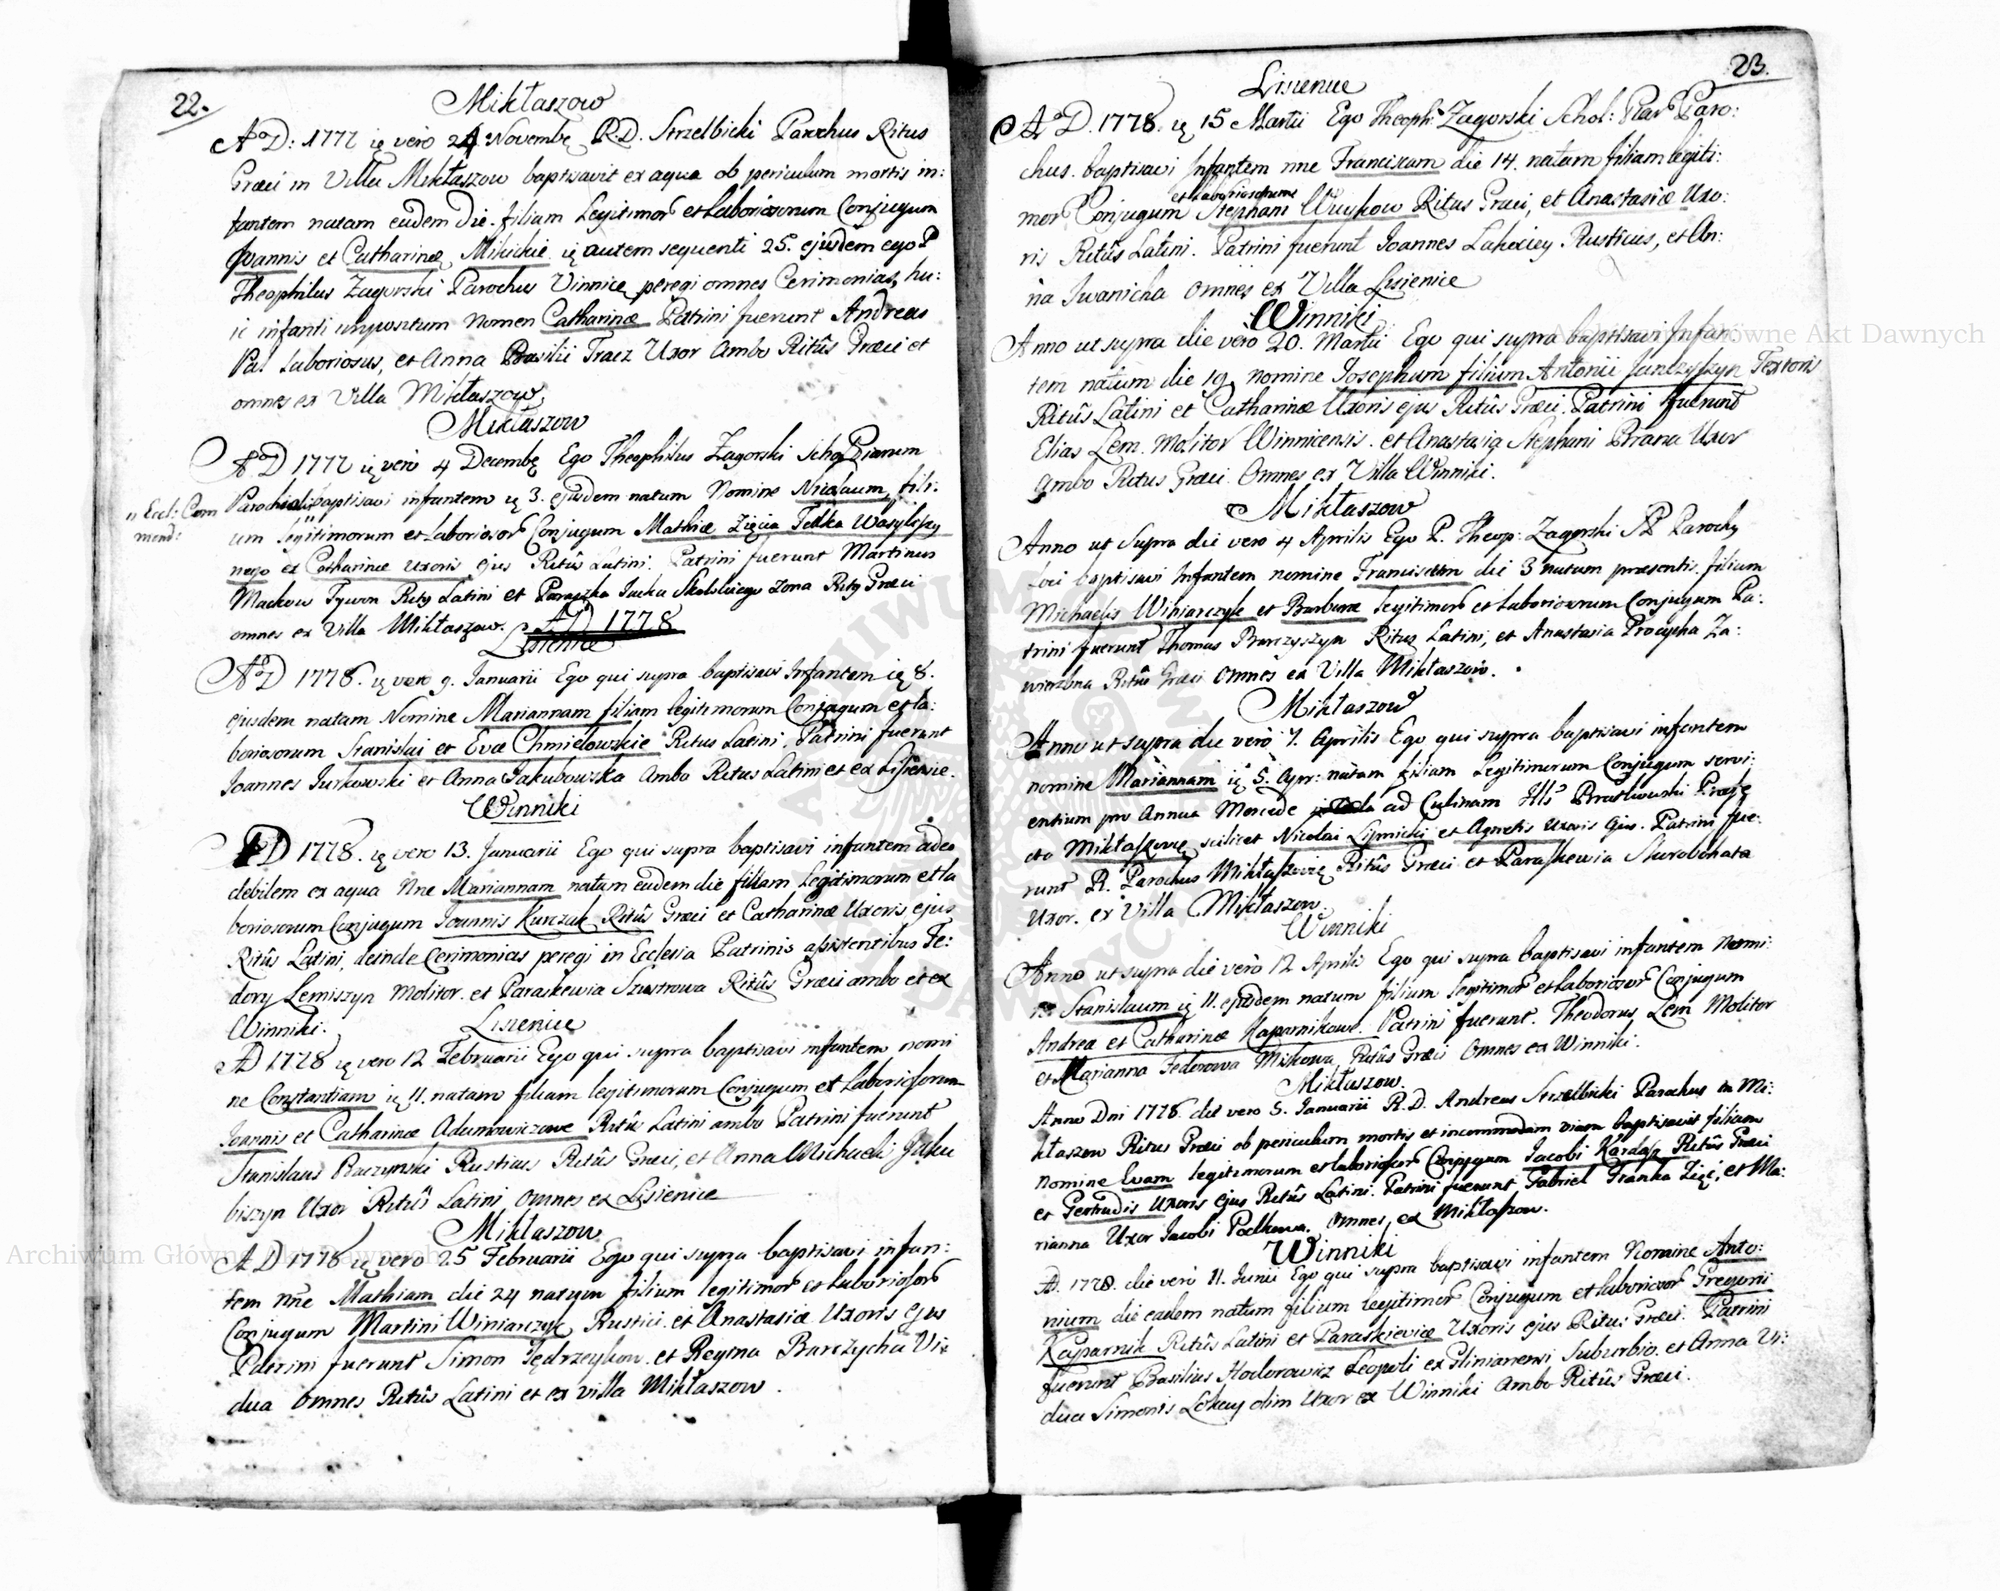 22.
Mikłaszow
A D: 1777 ię vero 24 Novembę R.D. Strzelbicki Parochus Ritus
Græci in Villa Mikłaszow baptisavit ex aqua ob periculum mortis in:
fantem natam eadem die filiam Legitimor et Laboriosorum Conjugum
Joannis et Catharinæ Mikickie ię autem sequenti 25. ejusdem ego P
Theophilus Zagorski Parochus Vinnicę peregi omnes Cerimonias, hu:
ic infanti impositum Nomen Catharinæ Patrini fuerunt Andreas
Pal Laboriosus, et Anna Basilii Tracz Uxor Ambo Ritûs Græci et
omnes ex Villa Mikłaszow.
Mikłaszow
A D 1777 ię vero 4 Decembę Ego Theophilus Zagorski Schol Piarum
Parochialis baptisavi infantem ię 3. ejusdem natum Nomine Nicolaum, fili:
in Eccl: Com
mend:
um legitimorum et Laborioso Conjugum Mathiæ Zięcia Felka Wasylczy
nego et Catharinæ Uxoris ejus Ritûs Latini. Patrini fuerunt Martinus
Mackow Tywon Ritg Latini et Paraszka Jacka Skolskiego Zona Ritg Græci
omnes ex Villa Mikłaszow. A D 1778
Lisienice
A D 1778. ię vero 9. Januarii Ego qui supra baptisavi Infantem ię 8.
ejusdem natam Nomine Mariannam filiam legitimorum Conjugum et la:
boriosorum Stanislai et Evæ Chmielowskie Ritus Latini. Patrini fuerunt
Joannes Jurkowski et Anna Jakubowska Ambo Ritus Latini et ex Lisienice.
Winniki
A D 1778. ię vero 13. Januarii Ego qui supra baptisavi infantem adeo
debilem ex aqua Nne Mariannam natam eadem die filiam Legitimorum et la
boriosorum Conjugum Joannis Kurczak Ritûs Græci et Catharinæ Uxoris ejus
Ritûs Latini, deinde Cerimonias peregi in Ecclesia Patrinis assistentibus Fe:
dory Lemiszyn Molitor. et Paraskewia Szustrowa Ritûs Græci ambo et ex
Winniki.
Lisienice
A D 1778 ię vero 12 Februarii Ego qui supra baptisavi infantem nomi
ne Constantiam ię 11. natam filiam legitimorum Conjugum et Laboriosorum
Joannis et Catharinæ Adamowiczowe Ritûs Latini ambo Patrini fuerunt
Stanislaus Raczynski Rusticus Ritûs Græci, et Anna Michaeli Jaku
biszyn Uxor Ritûs Latini omnes ex Lisienice
Mikłaszow
A D 1778 ię vero 25 Februarii Ego qui supra baptisavi infan:
tem nne Mathiam die 24 natum filium legitimor et Laborioso
Conjugum Martini Winiarczyk Rustici et Anastasiæ Uxoris ejus
Patrini fuerunt Simon Jędrzeykow et Regina Barczycha Vi:
dua omnes Ritûs Latini et ex villa Mikłaszow.
23.
Lisienice
A D. 1778. ię 15 Martii Ego Theoph: Zagorski Schol: Piar Paro:
chus. baptisavi Infantem nne Franciscam die 14. natam filiam legiti:
et Laboriosorum
mor Conjugum Stephani Wuykow Ritus Græci, et Anastasiæ Uxo:
ris Ritûs Latini. Patrini fuerunt Joannes Lahociey Rusticus, et An:
na Iwanicha omnes ex Villa Lisienice
Winniki
Anno ut supra die vero 20. Martii Ego qui supra baptisavi Infan:
tem natum die 19 nomine Josephum filium Antonii Janczyszyn Textoris
Ritûs Latini et Catharinæ Uxoris ejus Ritûs Græci. Patrini fuerunt
Elias Lem Molitor Winnicensis. et Anastasia Stephani Prana Uxor
Ambo Ritus Græci Omnes ex Villa Winniki.
Mikłaszow
Anno ut Supra die vero 4 Aprilis Ego P. Theop: Zagorski SP Parochg
loci baptisavi Infantem nomine Franciscum die 3 natum præsentis. filium
Michaelis Winiarczyk et Barbaræ legitimor et Laboriosorum Conjugum Pa:
trini fuerunt Thomas Barczyszyn Ritus Latini, et Anastasia Procycha Za:
wierzbna Ritûs Græci omnes ex Villa Mikłaszow.
Mikłaszow
Anno ut supra die vero 7. Aprilis Ego qui supra baptisavi infantem
nomine Mariannam ię 5. Apr: natam filiam Legitimorum Conjugum servi:
entium pro Annua Mercede ad Culinam Ills Bratkowski Præfe
cto Mikłaszovię scilicet Nicolai Lipnicki et Agnetis Uxoris Ejus. Patrini fue:
runt R. Parochus Mikłaszovię Ritûs Græci et Paraskewia Skorobohata
Uxor. ex Villa Mikłaszow.
Winniki
Anno ut supra die vero 12 Aprilis Ego qui supra baptisavi infantem Nomi:
ne Stanislaum ię 11. ejusdem natum filium Legitimor et Laboriosor Conjugum
Andreæ et Catharinæ Kaparnikow. Patrini fuerunt. Theodorus Lem Molitor
et Marianna Fedorowa Miskowa Ritûs Græci Omnes ex Winniki.
Mikłaszow.
Anno Dni 1778. die vero 5. Januarii R.D. Andreas Strzelbicki Parochus in Mi:
kłaszow Ritus Græci ob periculum mortis et incommodam viam baptisavit filiam
nomine Evam legitimorum et Laboriosor Conjugum Jacobi Kardasz Ritûs Græci
et Gertrudis Uxoris ejus Ritûs Latini. Patrini fuerunt Gabriel Franka Zięć, et Ma:
rianna Uxor Jacobi Palkowa. omnes ex Mikłaszow.
Winniki
A. 1778. die vero 11. Junii Ego qui supra baptisavi infantem Nomine Anto:
nium die eadem natum filium legitimor Conjugum et Laboriosor Gregorii
Kaparnik Ritûs Latini et Paraskieviæ Uxoris ejus Ritus Græci. Patrini
fuerunt Basilius Hodorowicz Leopoli ex Glinianensi Suburbio. et Anna Vi:
dua Simonis Lokay olim Uxor ex Winniki Ambo Ritûs Græci.
Archiwum Główne Akt Dawnych
Archiwum Główne Akt Dawnych